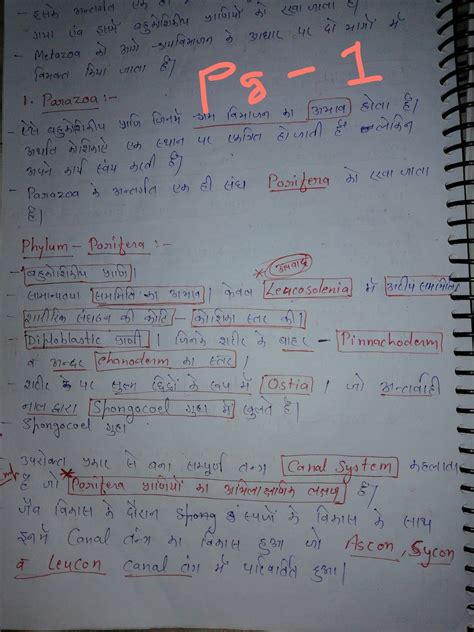 - इसके अन्तर्गत एक ही
गया एवं इसमें बहुकोशिकीय प्राणियों को रखा जाता है।
- Metazoa को आगे श्रमविभाजन के आधार पर दो भागों में
विभक्त किया जाता है।
Pg - 1
1. Parazoa :-
- ऐसे बहुकोशिकीय प्राणी जिनमें श्रम विभाजन का अभाव होता है।
अर्थात कोशिकाएं एक स्थान पर एकत्रित हो जाती है लेकिन
अपने कार्य स्वंय करती हैं।
- Parazoa के अन्तर्गत एक ही संघ Porifera को रखा जाता
है।
Phylum - Porifera :-
- बहुकोशिकीय प्राणी।
* अपवाद
- सामान्यतया सममिति का अभाव। केवल Leucosolenia में अरीय सममिति
- शारीरिक संगठन की कोटि - कोशिका स्तर की।
- Diploblastic प्राणी। जिनके शरीर के बाहर - Pinnachoderm
व अन्दर Choanoderm का स्तर।
- शरीर पर सूक्ष्म छिद्रों के रूप में Ostia। जो अन्तर्वाही
नाल द्वारा Spongocoel गुहा में खुलते हैं।
- Spongocoel गुहा
उपरोक्त प्रकार से बना सम्पूर्ण तन्त्र Canal System कहलाता
है जो * Porifera प्राणियों का अभिलाक्षणिक लक्षण है।
जैव विकास के दौरान Spong व स्पंजों के विकास के साथ
इनमें Canal तंत्र का विकास हुआ जो Ascon, Sycon
व Leucon Canal तंत्र में परिवर्तित हुआ।